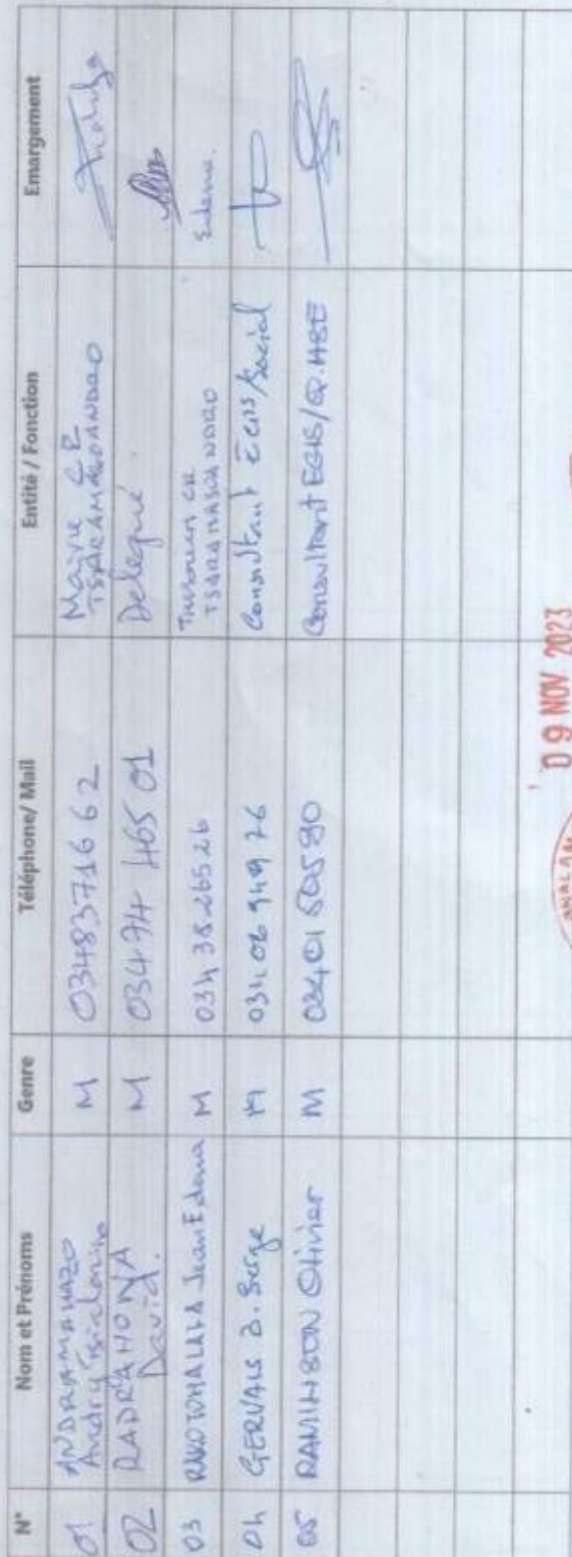 N° Nom et Prénoms Genre Téléphone/ Mail Entité / Fonction Emargement
01 ANDRIAMAHAZO M 0348371662 Maire CR
Andry TSARAMASOANDRO
02 RADRAHONA M 03474 465 01 Delegué
David.
03 RAKOTOMALALA Jean Edena M 034 38 265 26 CR Edena.
TSARAMASOANDRO
04 GERVAIS B. Serge M 034 06 949 76 Consultant EGIS/Social
05 RAMIHISON Olivier M 03401 60590 Consultant EGIS/Q.HSE
09 NOV 2023
ANALAM